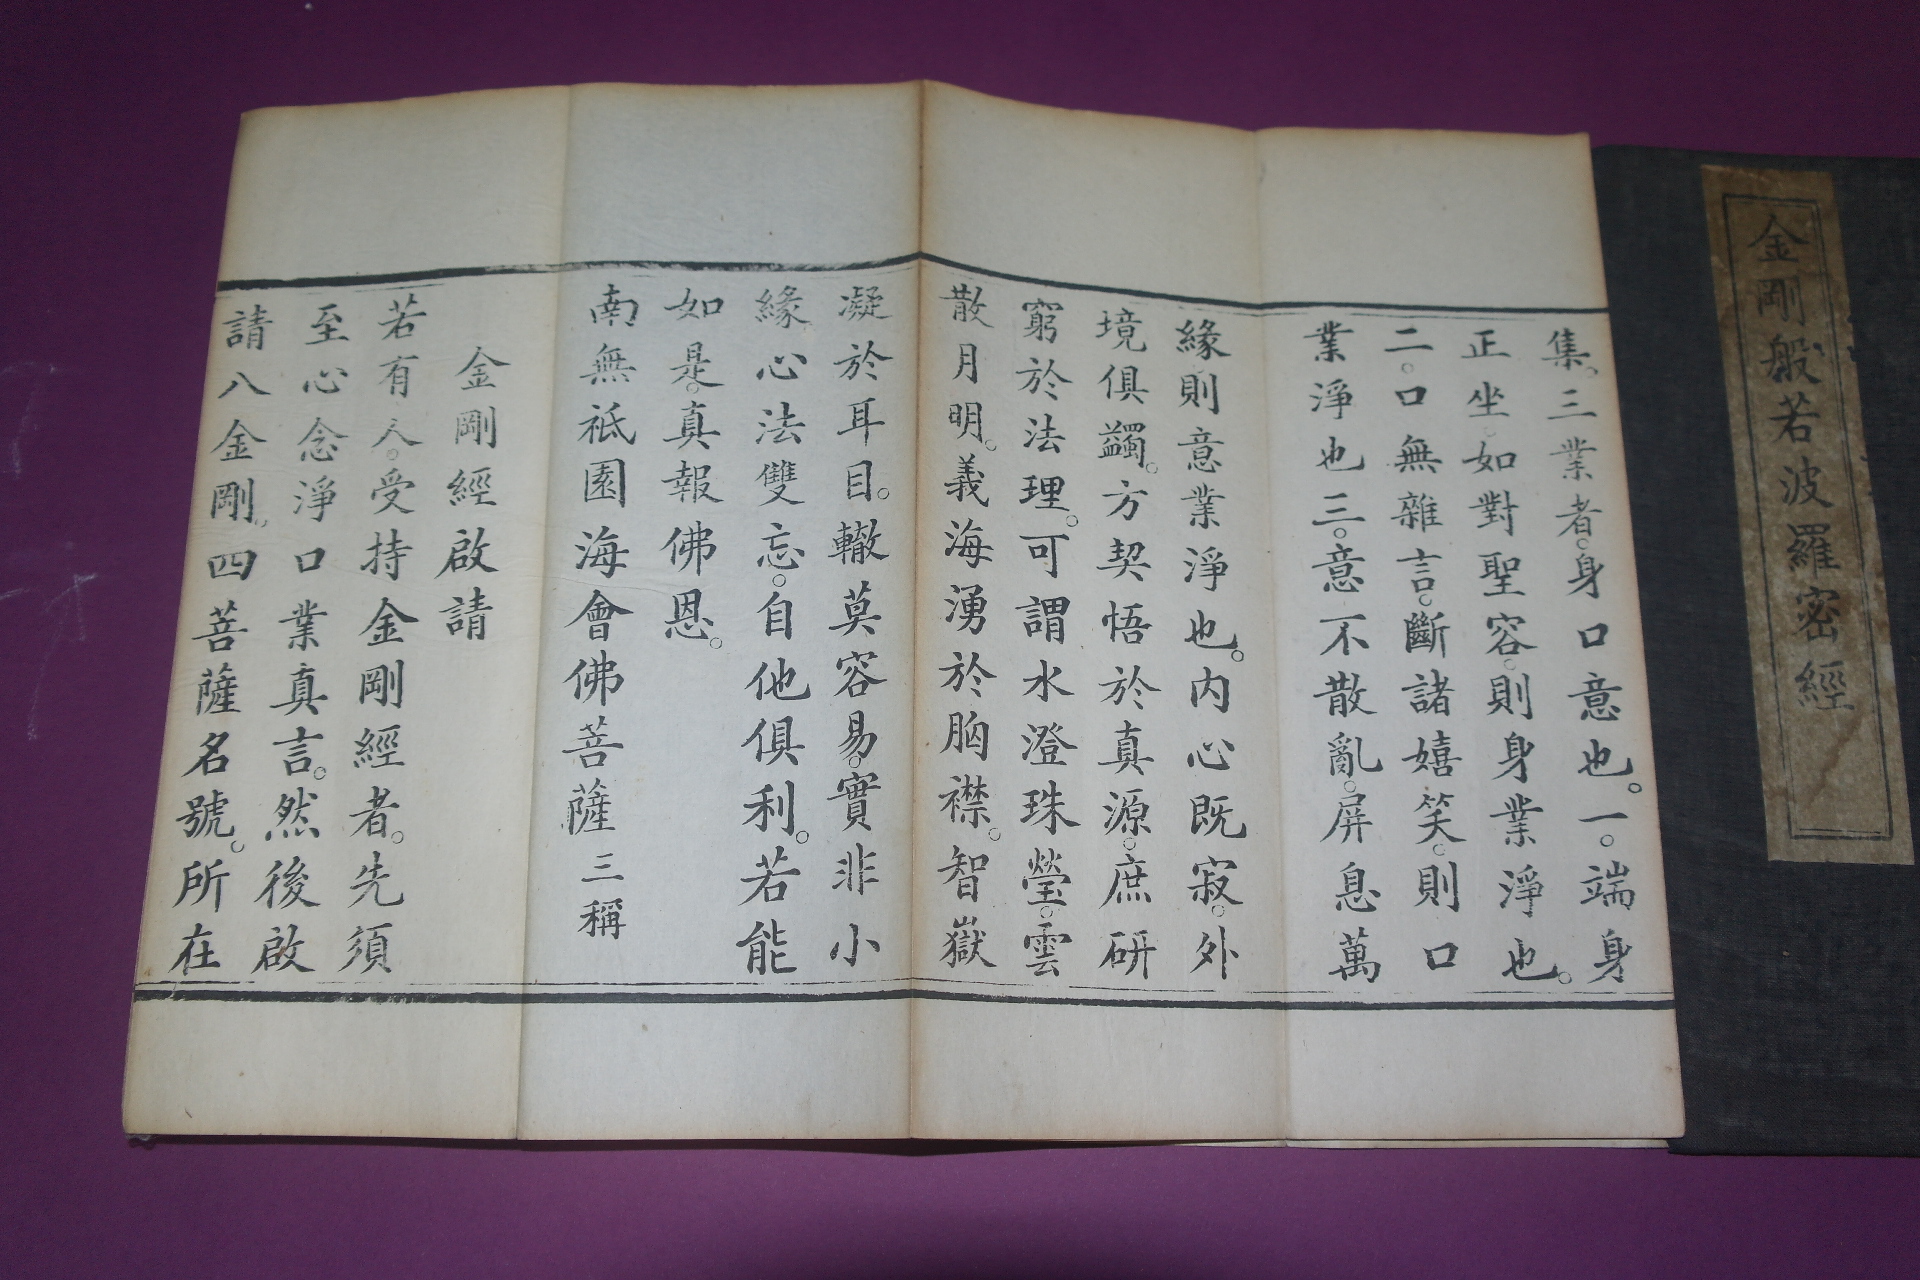 金剛般若波羅密經
集。三業者。身口意也。一。端身
正坐。如對聖容。則身業淨也。
二。口無雜言。斷諸嬉笑。則口
業淨也。三。意不散亂。屏息萬
緣。則意業淨也。內心既寂。外
境俱蠲。方契悟於真源。庶研
窮於法理。可謂水澄珠瑩。雲
散月明。義海湧於胸襟。智嶽
凝於耳目。轍莫容易。實非小
緣。心法雙忘。自他俱利。若能
如是。真報佛恩。
南無祇園海會佛菩薩三稱
金剛經啟請
若有人。受持金剛經者。先須
至心念淨口業真言。然後啟
請八金剛。四菩薩名號。所在